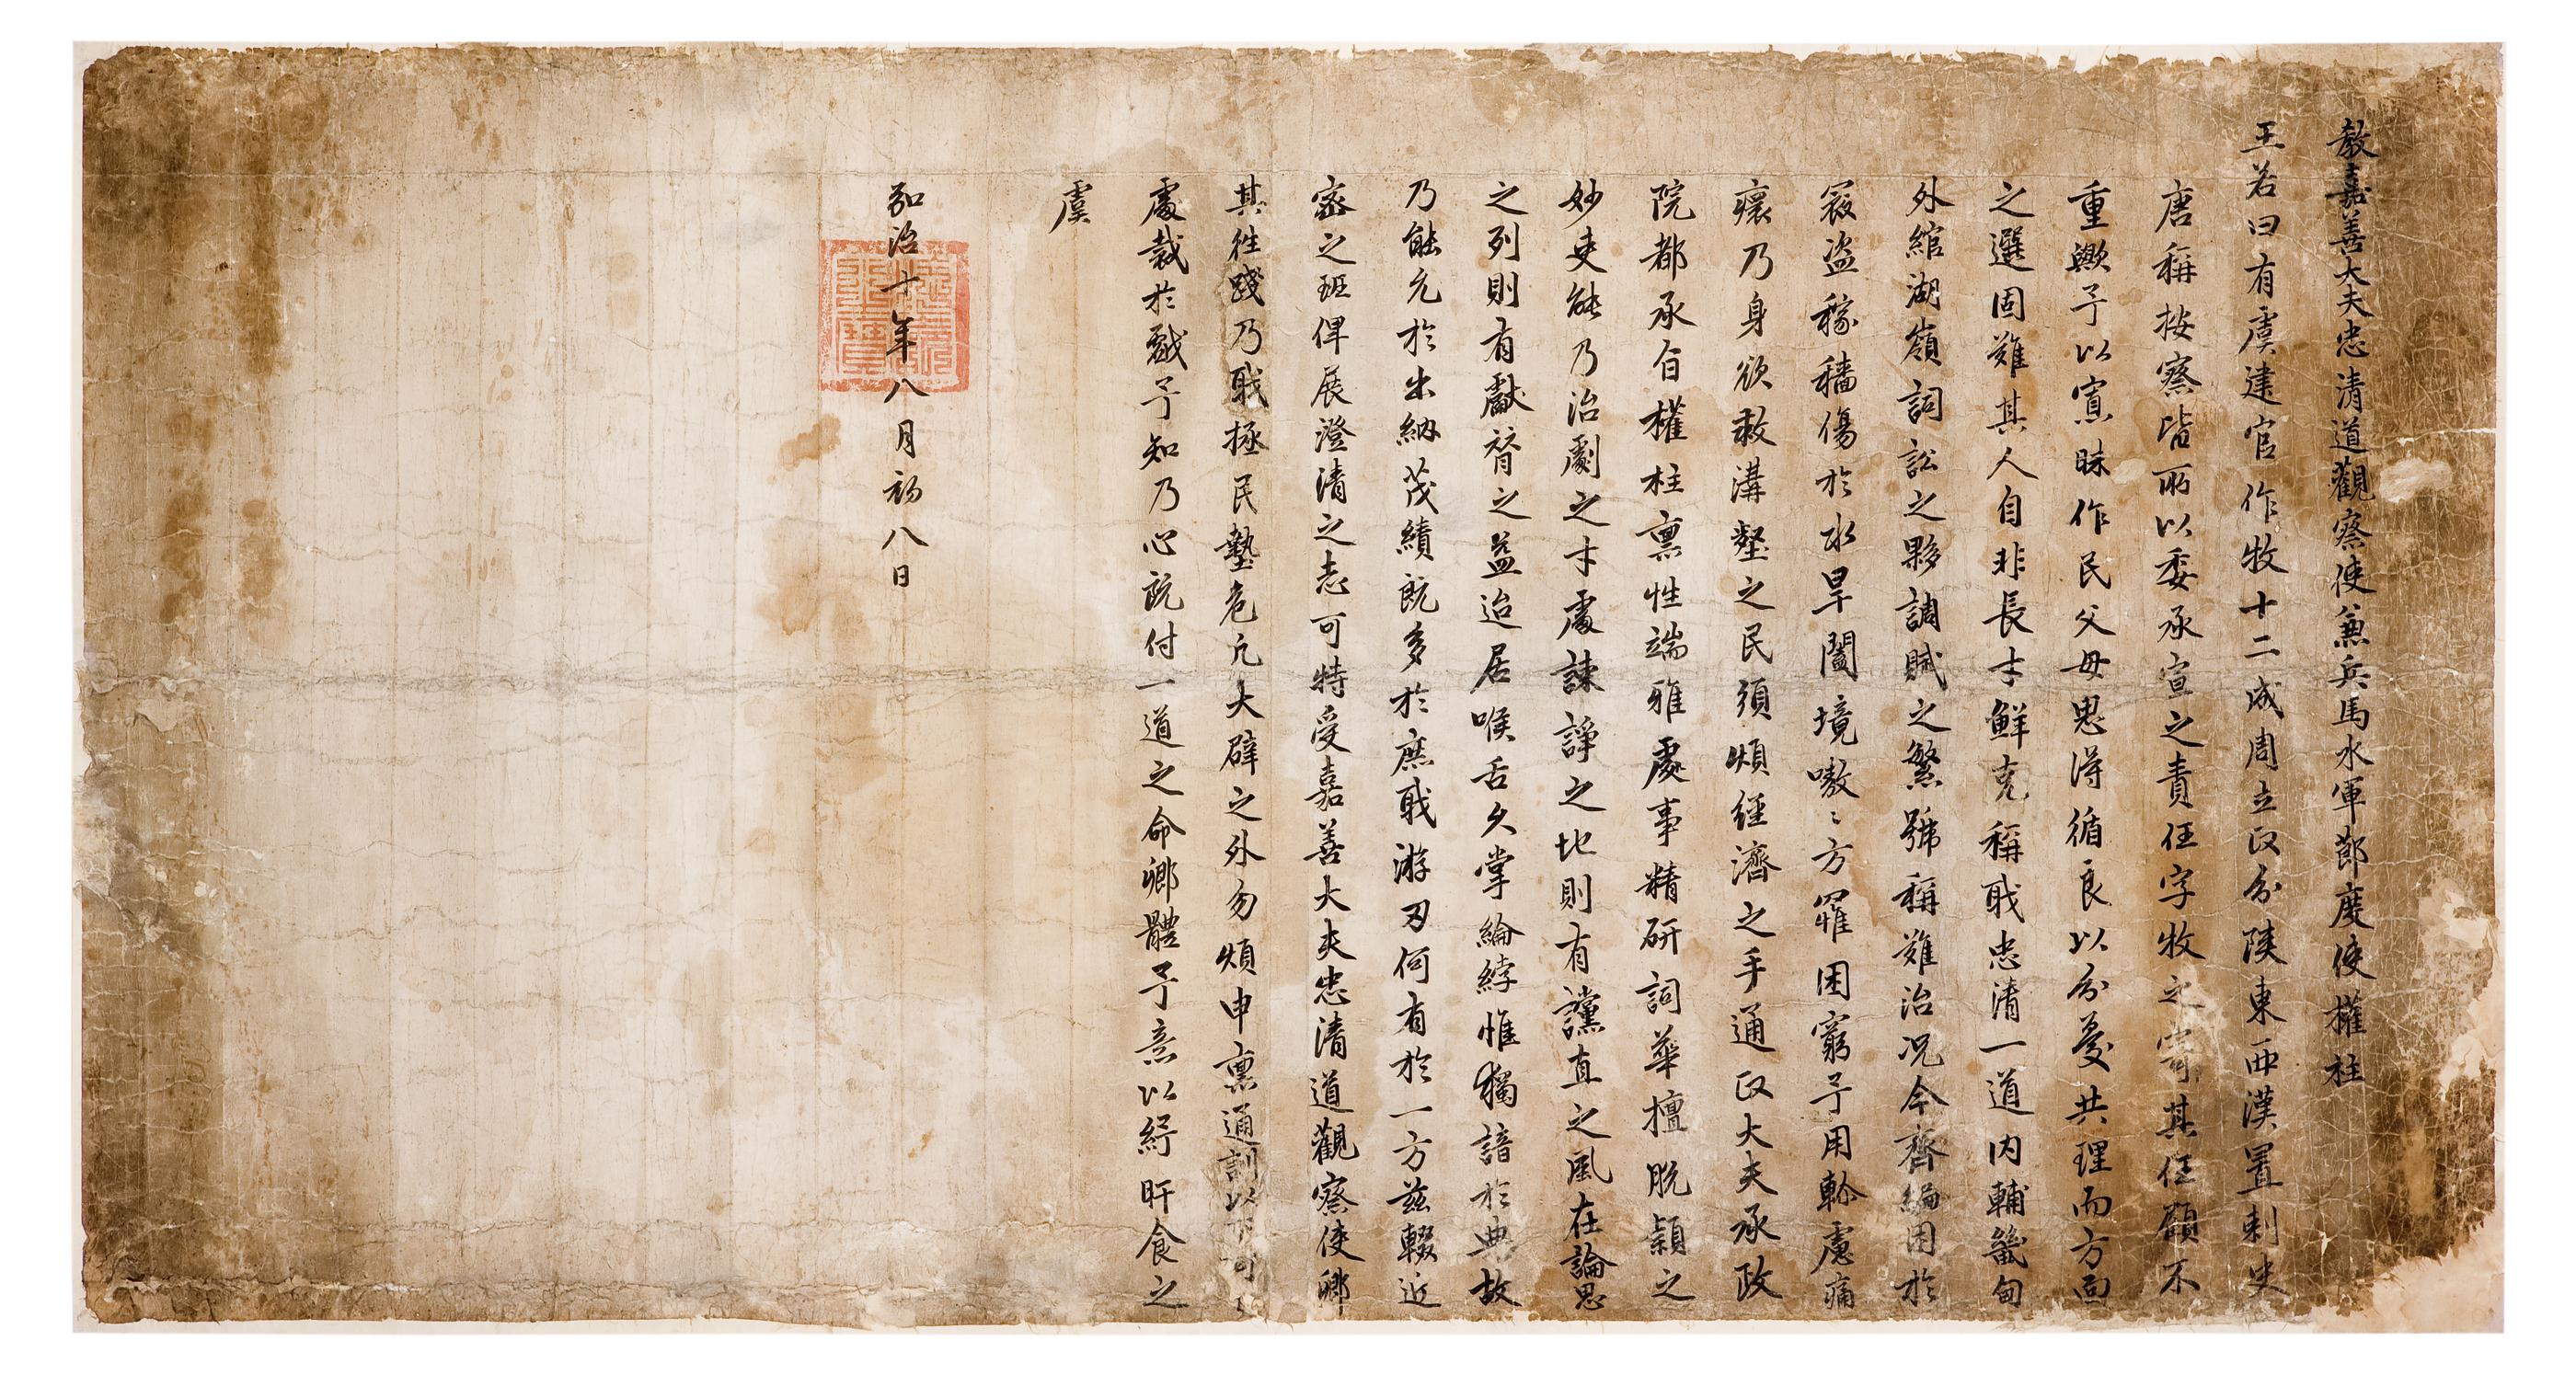 敎嘉善大夫忠淸道觀察使兼兵馬水軍節度使權柱
王若曰有虞建官作牧十二成周立政分陝東西漢置刺史
唐稱按察皆所以委承宣之責任字牧之寄其任顧不
重歟予以寡昧作民父母思得循良以分憂共理而方面
之選固難其人自非長才鮮克稱職忠淸一道內輔畿甸
外綰湖嶺詞訟之夥調賦之繁號稱難治况今齊編困於
竊盜稼穡傷於水旱闔境嗷〻方罹困窮予用軫慮痛
瘝乃身欲救溝壑之民須煩經濟之手通政大夫承政
院都承旨權柱稟性端雅處事精硏詞華擅脫穎之
妙吏能乃治劇之才處諫諍之地則有讜直之風在論思
之列則有獻替之益迨居喉舌久掌綸綍惟獨諳於典故
乃能允於出納茂績旣多於庶職游刃何有於一方玆輟近
密之班俾展澄淸之志可特受嘉善大夫忠淸道觀察使卿
其往踐乃職拯民墊危凡大辟之外勿煩申稟通訓以下可〻
處裁於戱予知乃心旣付一道之命卿體予意以紓旰食之
虞
弘治十年八月初八日